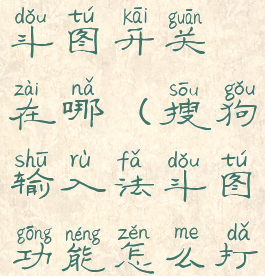 dǒu tú kāi guān
斗图开关
zài nǎ sōu gǒu
在哪（搜狗
shū rù fǎ dǒu tú
输入法斗图
gōng néng zěn me dǎ
功能怎么打